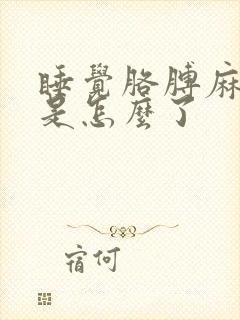 睡覺胳膊麻
是怎麼了
宿何